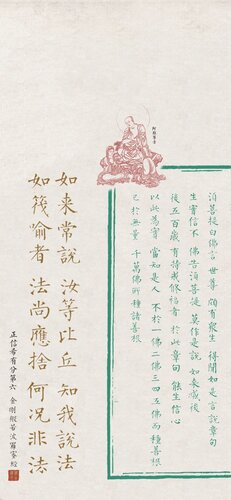 須菩提白佛言 世尊 頗有眾生 得聞如是言說章句
生實信不 佛告須菩提 莫作是說 如來滅後
後五百歲 有持戒修福者 於此章句 能生信心
以此為實 當知是人 不於一佛二佛三四五佛而種善根
已於無量 千萬佛所種諸善根
如來常說 汝等比丘 知我說法
如筏喻者 法尚應捨 何況非法
正信希有分第六 金剛般若波羅蜜經